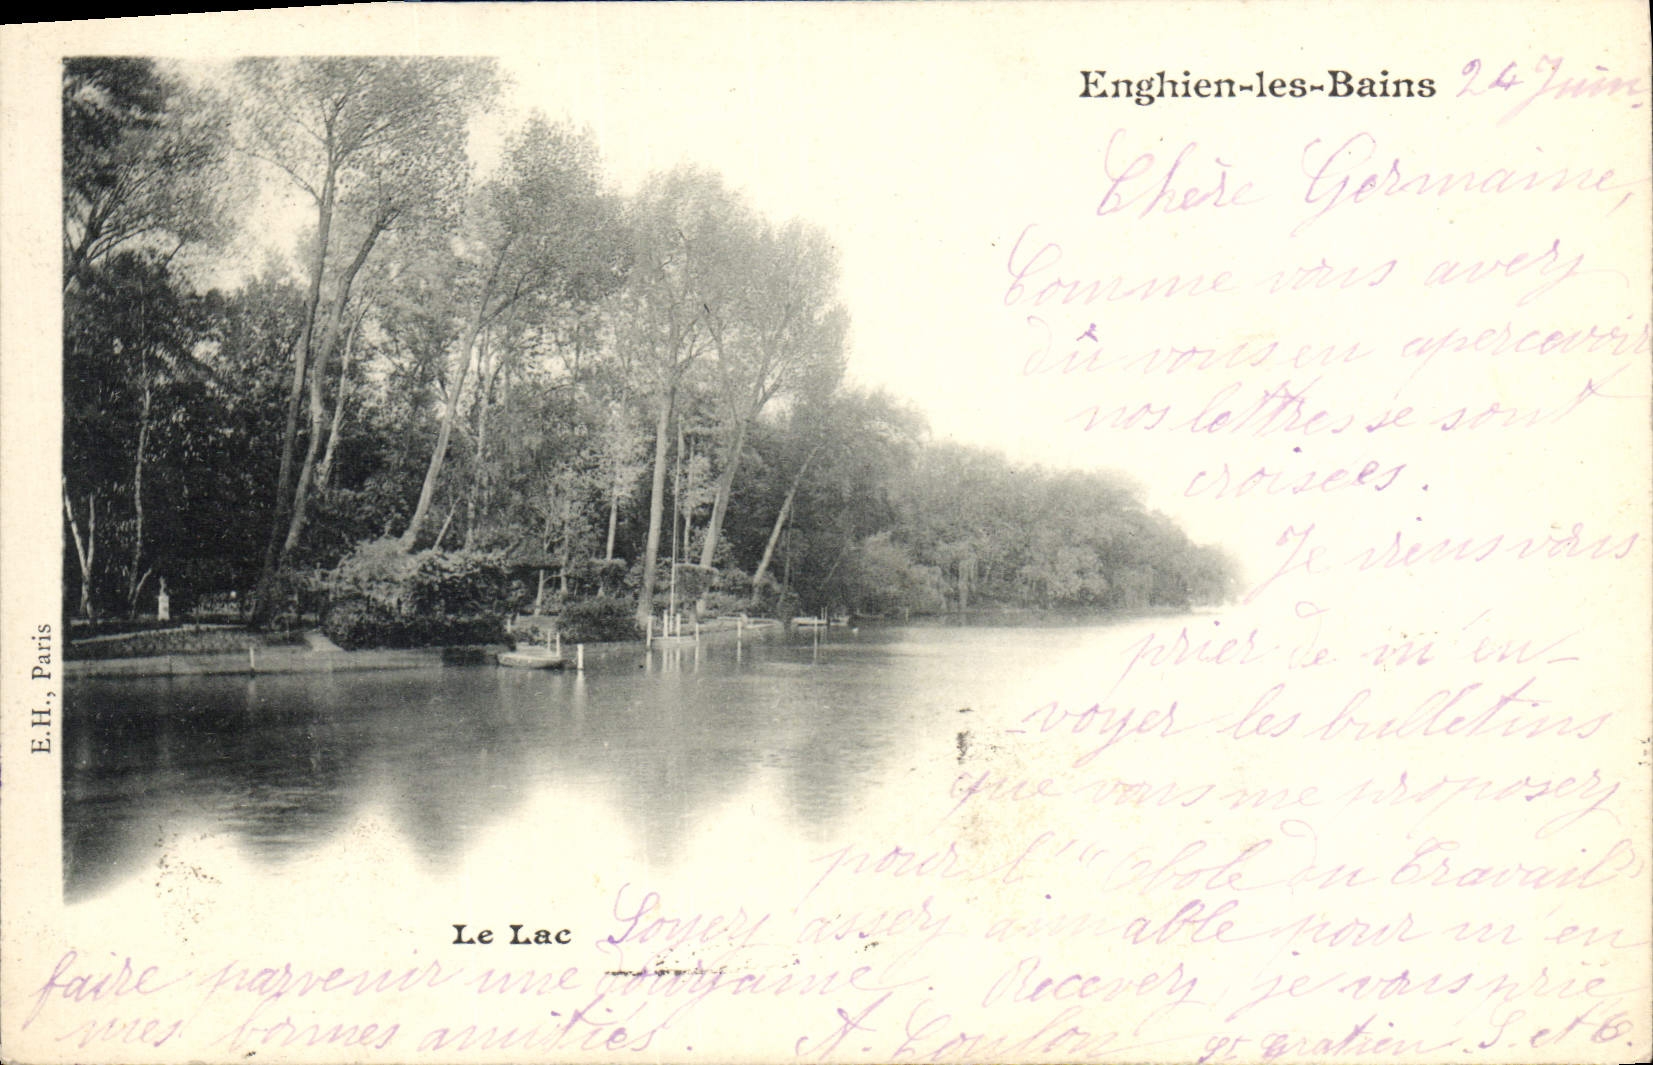 Enghien-les-Bains 24 Juin.
Chère Germaine,
Comme vous avez
dû vous en apercevoir
nos lettres se sont
croisées.
Je viens vous
prier de m'en-
-voyer les bulletins
que vous me proposez
pour l'"Obole du Travail"
Le Lac
Soyez assez aimable pour m'en
faire parvenir une douzaine. Recevez, je vous prie
mes bonnes amitiés. A. Loulon St Gratien. S. et O.
E.H., Paris